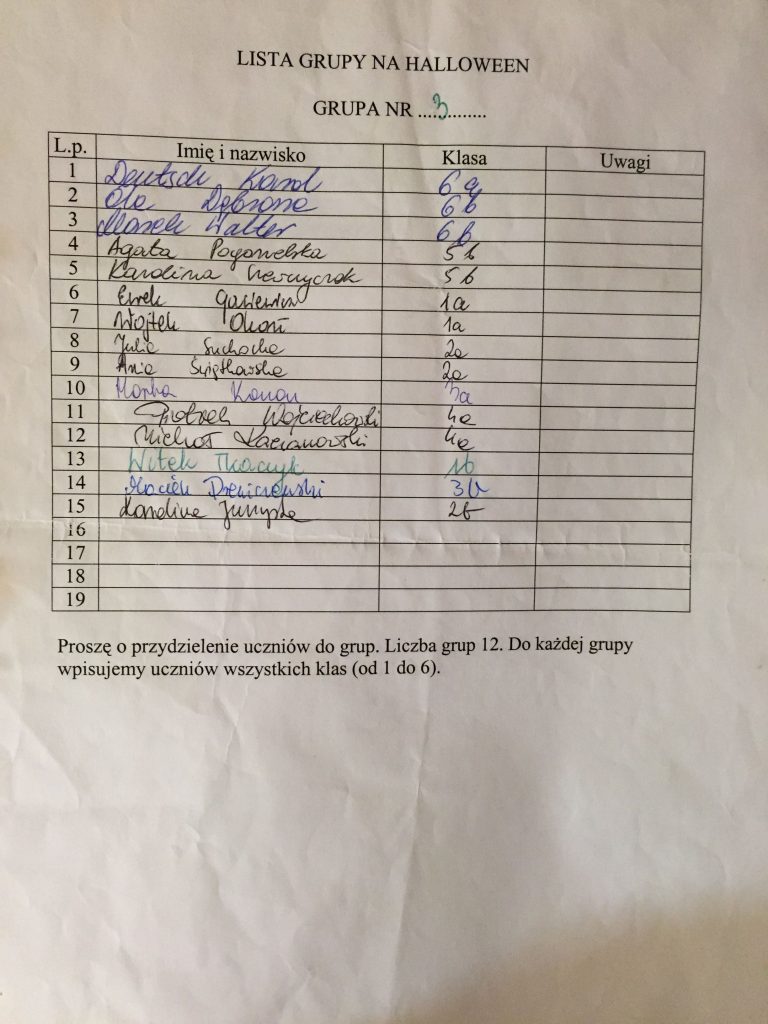 LISTA GRUPY NA HALLOWEEN
GRUPA NR ...3...........
L.p. Imię i nazwisko Klasa Uwagi
1 Deutsch Karol 6a
2 Ola 6b
3 Marek Walter 6b
4 Agata Pogorzelska 5b
5 Karolina 5b
6 1a
7 Wojtek Okoń 1a
8 Julia Suchocka 2a
9 Ania Świątkowska 2a
10 3a
11 Piotrek Wojciechowski 4a
12 Michał Kacianowski 4a
13 Witek Tkaczyk 1b
14 Maciek 3b
15 Karolina 2b
16
17
18
19
Proszę o przydzielenie uczniów do grup. Liczba grup 12. Do każdej grupy
wpisujemy uczniów wszystkich klas (od 1 do 6).